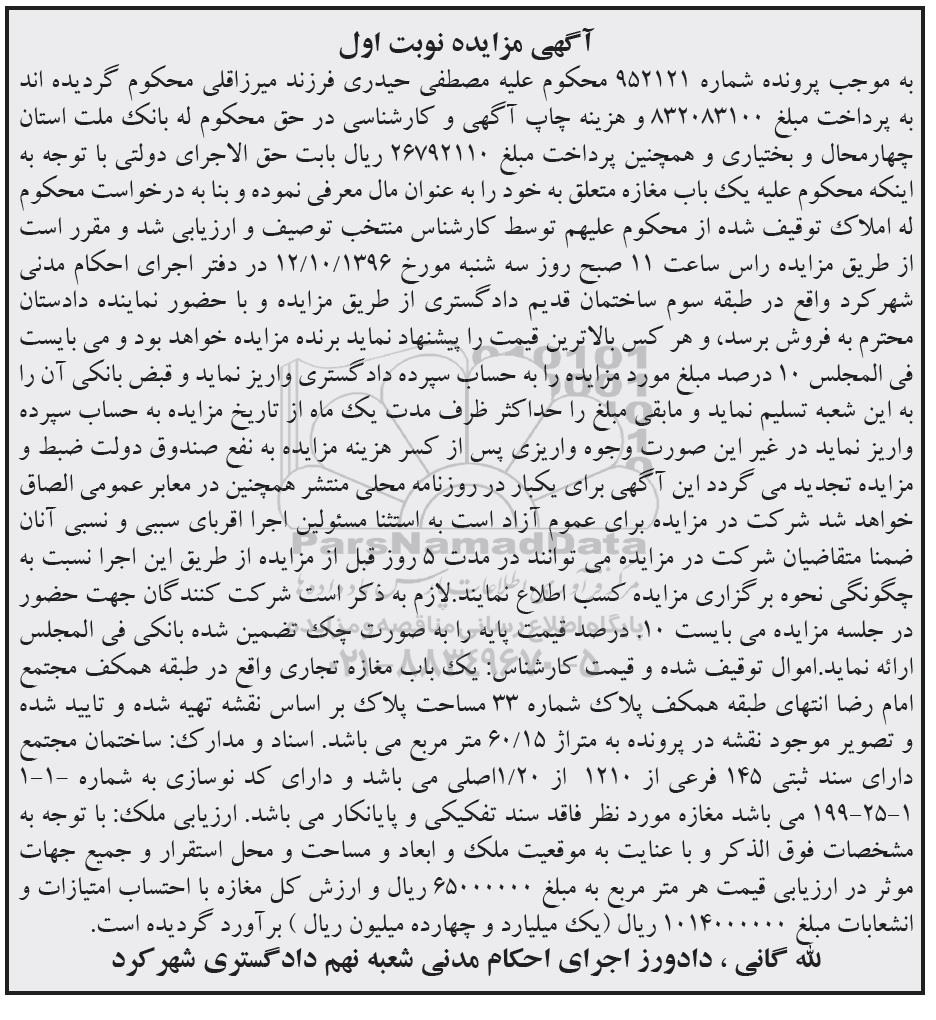 آگهی مزایده نوبت اول
به موجب پرونده شماره ۹۵۲۱۲۱ محکوم علیه مصطفی حیدری فرزند میرزاقلی محکوم گردیده اند
به پرداخت مبلغ ۸۳۲۰۸۳۱۰۰ و هزینه چاپ آگهی و کارشناسی در حق محکوم له بانک ملت استان
چهارمحال و بختیاری و همچنین پرداخت مبلغ ۲۶۷۹۲۱۱۰ ریال بابت حق الاجرای دولتی با توجه به
اینکه محکوم علیه یک باب مغازه متعلق به خود را به عنوان مال معرفی نموده و بنا به درخواست محکوم
له املاک توقیف شده از محکوم علیهم توسط کارشناس منتخب توصیف و ارزیابی شد و مقرر است
از طریق مزایده راس ساعت ۱۱ صبح روز سه شنبه مورخ ۱۲/۱۰/۱۳۹۶ در دفتر اجرای احکام مدنی
شهرکرد واقع در طبقه سوم ساختمان قدیم دادگستری از طریق مزایده و با حضور نماینده دادستان
محترم به فروش برسد، و هر کس بالاترین قیمت را پیشنهاد نماید برنده مزایده خواهد بود و می بایست
فی المجلس ۱۰ درصد مبلغ مورد مزایده را به حساب سپرده دادگستری واریز نماید و قبض بانکی آن را
به این شعبه تسلیم نماید و مابقی مبلغ را حداکثر ظرف مدت یک ماه از تاریخ مزایده به حساب سپرده
واریز نماید در غیر این صورت وجوه واریزی پس از کسر هزینه مزایده به نفع صندوق دولت ضبط و
مزایده تجدید می گردد این آگهی برای یکبار در روزنامه محلی منتشر همچنین در معابر عمومی الصاق
خواهد شد شرکت در مزایده برای عموم آزاد است به استثنا مسئولین اجرا اقربای سببی و نسبی آنان
ضمنا متقاضیان شرکت در مزایده می توانند در مدت ۵ روز قبل از مزایده از طریق این اجرا نسبت به
چگونگی نحوه برگزاری مزایده کسب اطلاع نمایند.لازم به ذکر است شرکت کنندگان جهت حضور
در جلسه مزایده می بایست ۱۰ درصد قیمت پایه را به صورت چک تضمین شده بانکی فی المجلس
ارائه نماید.اموال توقیف شده و قیمت کارشناس: یک باب مغازه تجاری واقع در طبقه همکف مجتمع
امام رضا انتهای طبقه همکف پلاک شماره ۳۳ مساحت پلاک بر اساس نقشه تهیه شده و تایید شده
و تصویر موجود نقشه در پرونده به متراژ ۶۰/۱۵ متر مربع می باشد. اسناد و مدارک: ساختمان مجتمع
دارای سند ثبتی ۱۴۵ فرعی از ۱۲۱۰ از ۱/۲۰اصلی می باشد و دارای کد نوسازی به شماره ۱-۱-
۱-۲۵-۱۹۹ می باشد مغازه مورد نظر فاقد سند تفکیکی و پایانکار می باشد. ارزیابی ملک: با توجه به
مشخصات فوق الذکر و با عنایت به موقعیت ملک و ابعاد و مساحت و محل استقرار و جمیع جهات
موثر در ارزیابی قیمت هر متر مربع به مبلغ ۶۵۰۰۰۰۰۰ ریال و ارزش کل مغازه با احتساب امتیازات و
انشعابات مبلغ ۱۰۱۴۰۰۰۰۰۰ ریال (یک میلیارد و چهارده میلیون ریال ) برآورد گردیده است.
لله گانی ، دادورز اجرای احکام مدنی شعبه نهم دادگستری شهرکرد
ParsNamadData
پایگاه اطلاع رسانی مناقصه و مزایده
۰۲۱-۸۸۳۴۹۶۷۰-۵